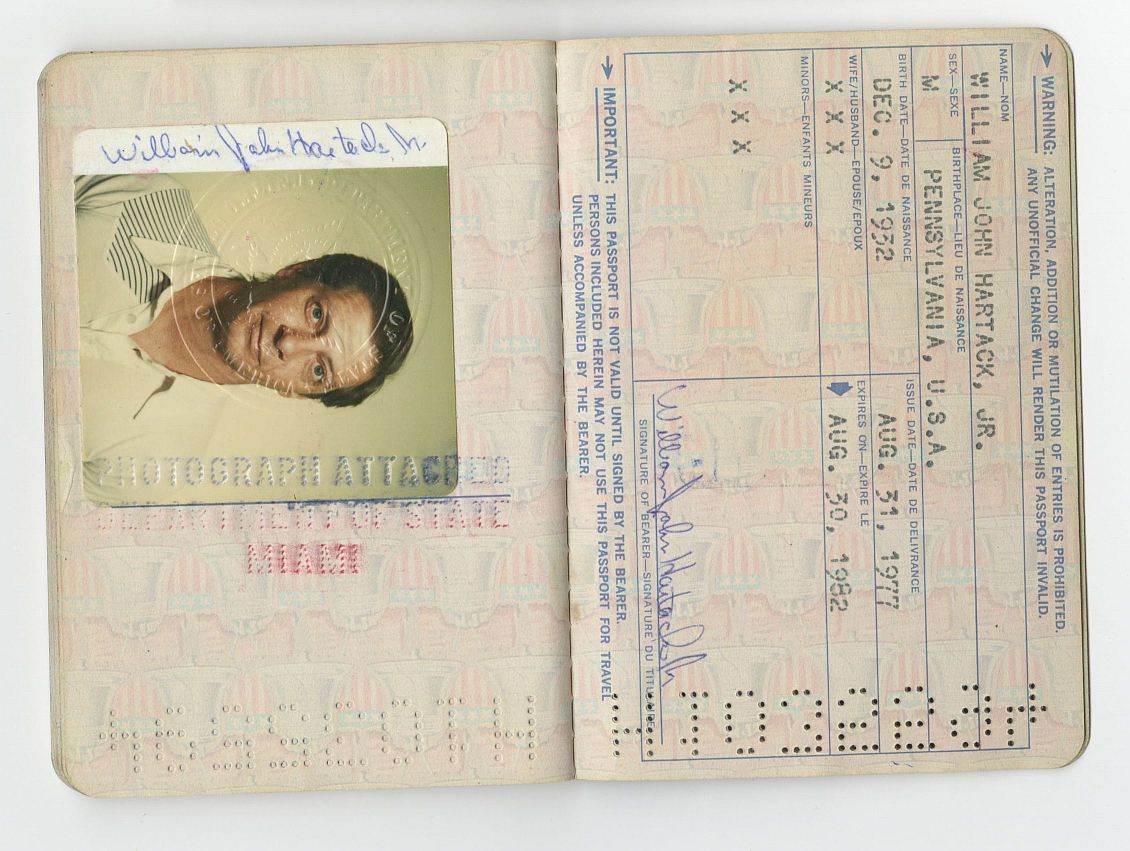 WARNING: ALTERATION, ADDITION OR MUTILATION OF ENTRIES IS PROHIBITED.
ANY UNOFFICIAL CHANGE WILL RENDER THIS PASSPORT INVALID.
NAME—NOM
WILLIAM JOHN HARTACK, JR.
SEX—SEXE
BIRTHPLACE—LIEU DE NAISSANCE
M
PENNSYLVANIA, U.S.A.
BIRTH DATE—DATE DE NAISSANCE
ISSUE DATE—DATE DE DELIVRANCE
DEC. 9, 1932
AUG. 31, 1977
WIFE/HUSBAND—EPOUSE/EPOUX
EXPIRES ON—EXPIRE LE
X X X
AUG. 30, 1982
MINORS—ENFANTS MINEURS
X X X
William John Hartack Jr
SIGNATURE OF BEARER—SIGNATURE DU TITULAIRE
IMPORTANT: THIS PASSPORT IS NOT VALID UNTIL SIGNED BY THE BEARER.
PERSONS INCLUDED HEREIN MAY NOT USE THIS PASSPORT FOR TRAVEL
UNLESS ACCOMPANIED BY THE BEARER.
William John Hartack Jr.
PHOTOGRAPH ATTACHED
DEPARTMENT OF STATE
MIAMI